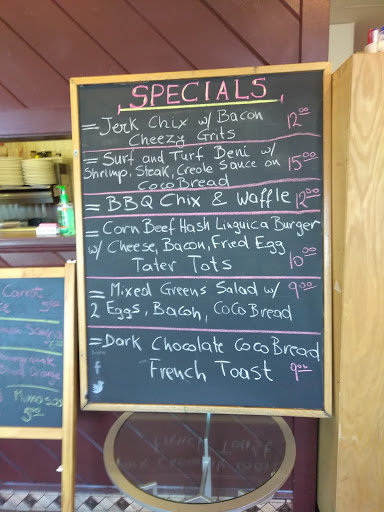 SPECIALS
= Jerk Chix w/ Bacon
Cheezy Grits 12.00
= Surf and Turf Beni w/
Shrimp, Steak, Creole Sauce on 15.00
CocoBread
= BBQ Chix & Waffle 12.00
= Corn Beef Hash Linguica Burger
w/ Cheese, Bacon, Fried Egg
Tater Tots 10.00
= Mixed Greens Salad w/ 9.00
2 Eggs, Bacon, CocoBread
= Dark Chocolate CocoBread
French Toast 9.00
Carrot
5.00
Mimosas
5.00